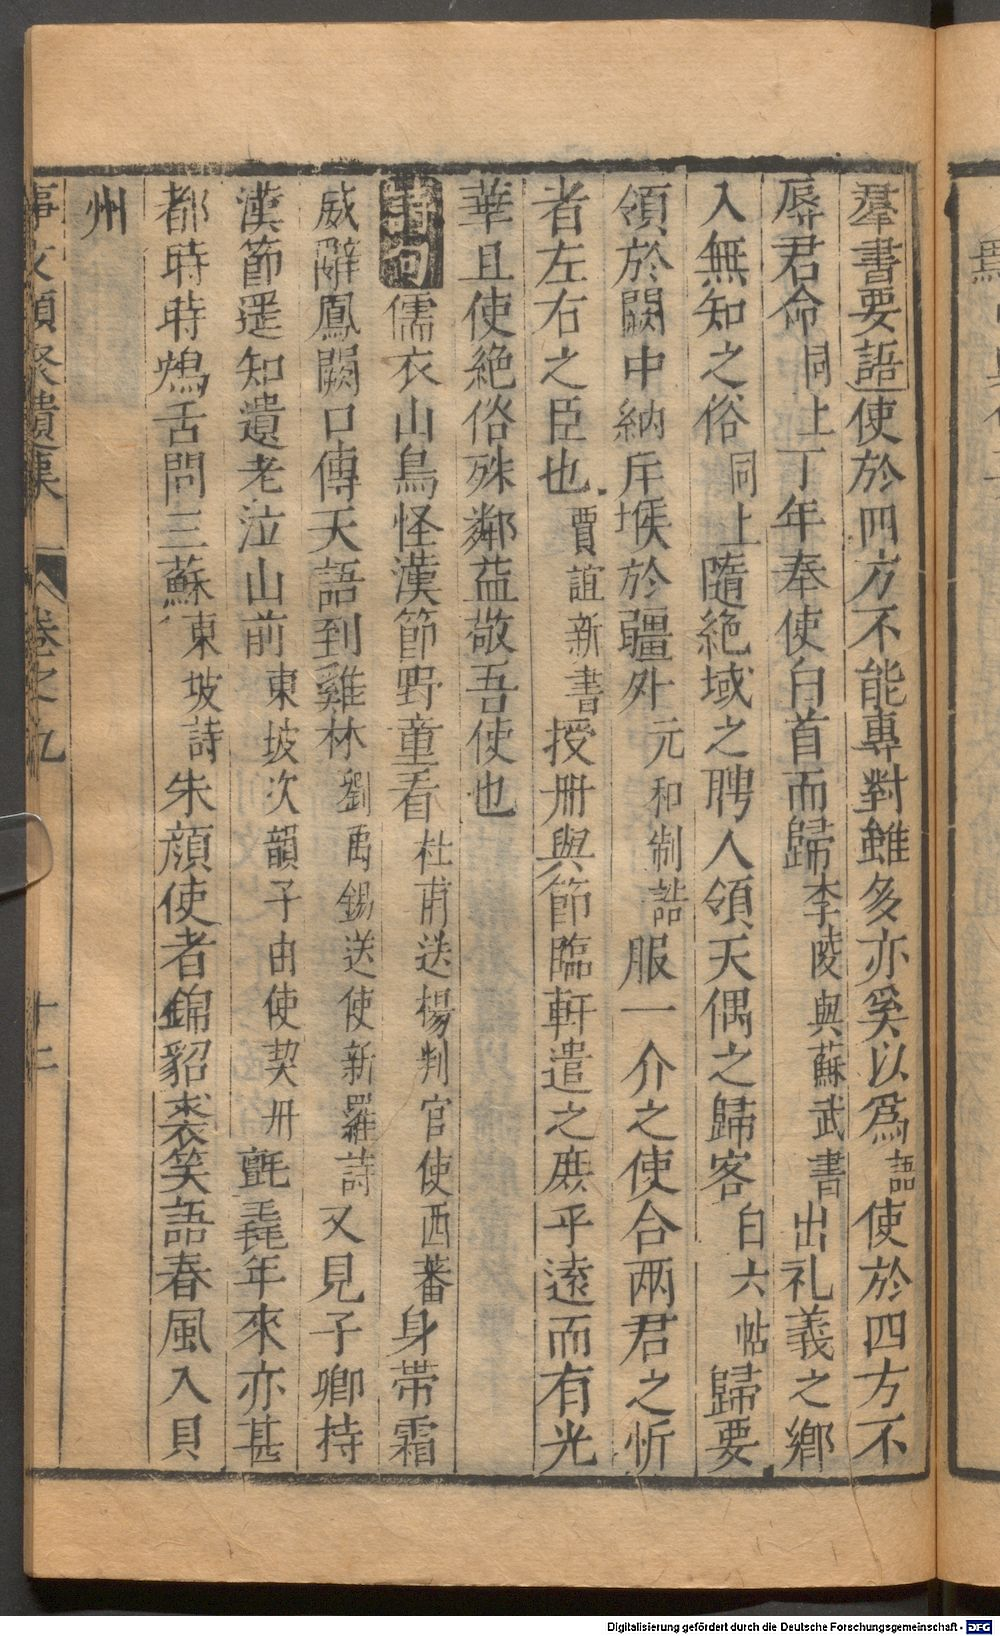 羣書要語使於四方不能專對雖多亦奚以爲語使於四方不
辱君命同上丁年奉使白首而歸李陵與蘇武書出礼義之鄉
入無知之俗同上隨絶域之聘人領天偶之歸客白六帖歸要
領於闕中納斥堠於疆外元和制誥服一介之使合兩君之忻
者左右之臣也賈誼新書授册與節臨軒遣之庶乎遠而有光
華且使絶俗殊鄰益敬吾使也
詩句儒衣山鳥怪漢節野童看杜甫送楊判官使西蕃身帶霜
威辭鳳闕口傳天語到雞林劉禹錫送使新羅詩又見子卿持
漢節遥知遺老泣山前東坡次韻子由使契丹氊毳年來亦甚
都時時鴂舌問三蘇東坡詩朱顔使者錦貂裘笑語春風入貝
州
事文類聚遺集 卷之九 十二
Digitalisierung gefördert durch die Deutsche Forschungsgemeinschaft - DFG